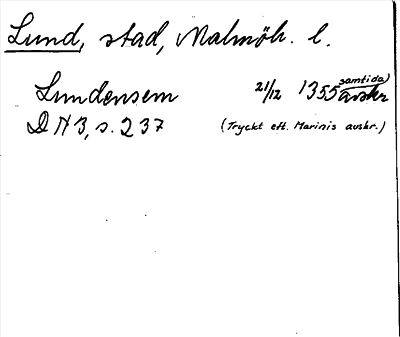 Lund, stad, Malmöh. l.
Lundensem 21/12 1355 samtida) avskr
DN 3, s. 237 (Tryckt eft. Marinis avskr.)